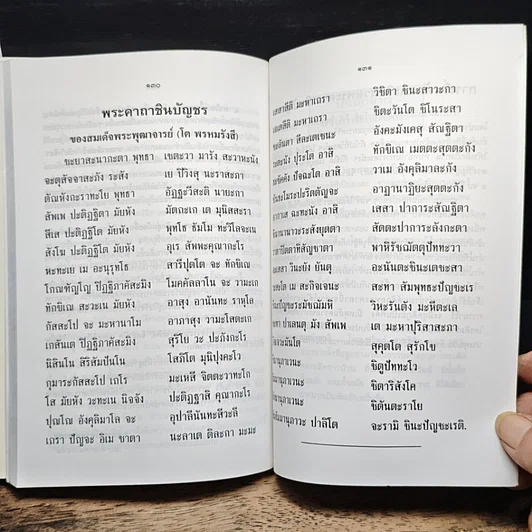 ๑๓๐
พระคาถาชินบัญชร
ของสมเด็จพระพุฒาจารย์ (โต พรหมรังสี)
ชะยาสะนากะตา พุทธา เชตะวา มารัง สะวาหะนัง
จะตุสัจจาสะภัง ระสัง เย ปิวิงสุ นะราสะภา
ตัณหังกะราทะโย พุทธา อัฏฐะวีสะติ นายะกา
สัพเพ ปะติฏฐิตา มัยหัง มัตถะเก เต มุนิสสะรา
สีเส ปะติฏฐิโต มัยหัง พุทโธ ธัมโม ทะวิโลจะเน
สังโฆ ปะติฏฐิโต มัยหัง อุเร สัพพะคุณากะโร
หะทะเย เม อะนุรุทโธ สารีปุตโต จะ ทักขิเณ
โกณฑัญโญ ปิฏฐิภาคัสมิง โมคคัลลาโน จะ วามะเก
ทักขิเณ สะวะเน มัยหัง อาสุง อานันทะ ราหุโล
กัสสะโป จะ มะหานาโม อุภาสุง วามะโสตะเก
เกสันเต ปิฏฐิภาคัสมิง สุริโย วะ ปะภังกะโร
นิสินโน สิริสัมปันโน โสภิโต มุนิปุงคะโว
กุมาระกัสสะโป เถโร มะเหสี จิตตะวาทะโก
โส มัยหัง วะทะเน นิจจัง ปะติฏฐาสิ คุณากะโร
ปุณโณ อังคุลิมาโล จะ อุปาลีนันทะสีวะลี
เถรา ปัญจะ อิเม ชาตา นะลาเต ติละกา มะมะ
๑๓๑
มะหาเถรา วิชิตา ชินะสาวะกา
มะหาเถรา ชิตะวันโต ชิโนระสา
สีละเตเชนะ อังคะมังเคสุ สัณฐิตา
ปุระโต อาสิ ทักขิเณ เมตตะสุตตะกัง
ปัจฉะโต อาสิ วาเม อังคุลิมาละกัง
อาฏานาฏิยะสุตตะกัง
ฉะทะนัง อาสิ เสสา ปาการะสัณฐิตา
สัตตะปาการะลังกะตา
พาหิรัชฌัตตุปัททะวา
วินะยัง ยันตุ อะนันตะชินะเตชะสา
เม สะกิจเจนะ สะทา สัมพุทธะปัญชะเร
วิหะรันตัง มะหีตะเล
ปาเลนตุ มัง สัพเพ เต มะหาปุริสาสะภา
สุคุตโต สุรักโข
ชิตูปัททะโว
ชิตาริสังโค
ชิตันตะราโย
ปาลิโต จะรามิ ชินะปัญชะเรติ.